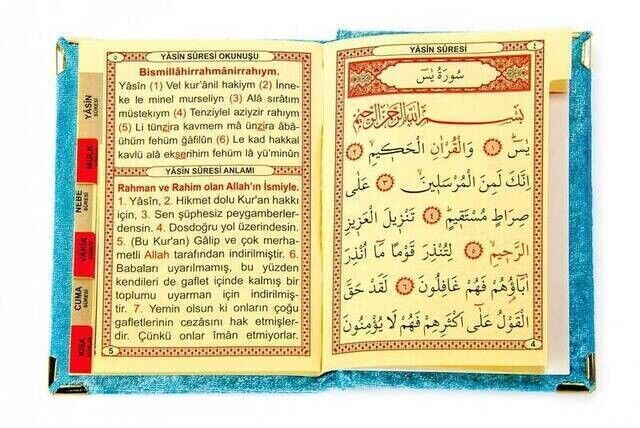 ٤
YÂSİN SÛRESİ
سُورَةُ يٰسٓ
بِسْمِ اللّٰهِ الرَّحْمٰنِ الرَّحِيمِ
يٰسٓ ﴿١﴾ وَالْقُرْاٰنِ الْحَكِيمِ ﴿٢﴾
اِنَّكَ لَمِنَ الْمُرْسَلِينَ ﴿٣﴾ عَلٰى
صِرَاطٍ مُسْتَقِيمٍ ﴿٤﴾ تَنْزِيلَ الْعَزِيزِ
الرَّحِيمِ ﴿٥﴾ لِتُنْذِرَ قَوْمًا مَٓا اُنْذِرَ
اٰبَٓاؤُ۬هُمْ فَهُمْ غَافِلُونَ ﴿٦﴾ لَقَدْ حَقَّ
الْقَوْلُ عَلٰٓى اَكْثَرِهِمْ فَهُمْ لَا يُؤْمِنُونَ
4
٥
YÂSİN SÛRESİ OKUNUŞU
Bismillâhirrahmânirrahıym.
Yâsîn (1) Vel kur'ânil hakiym (2) İnne-
ke le minel murseliyn (3) Alâ sırâtım
müstekıym (4) Tenziylel aziyzir rahıym
(5) Li tünzira kavmem mâ ünzira âbâ-
ühüm fehüm ğâfilûn (6) Le kad hakkal
kavlü alâ ekserihim fehüm lâ yü'minûn
YÂSİN SÛRESİ ANLAMI
Rahman ve Rahim olan Allah'ın İsmiyle.
1. Yâsîn, 2. Hikmet dolu Kur'an hakkı
için, 3. Sen şüphesiz peygamberler-
densin. 4. Dosdoğru yol üzerindesin.
5. (Bu Kur'an) Gâlip ve çok merha-
metli Allah tarafından indirilmiştir. 6.
Babaları uyarılmamış, bu yüzden
kendileri de gaflet içinde kalmış bir
toplumu uyarman için indirilmiş-
tir. 7. Yemin olsun ki onların çoğu
gafletlerinin cezasını hak etmişler-
dir. Çünkü onlar îmân etmiyorlar.
5
YÂSİN
SÛRESİ
MÜLK
NEBE
SÛRESİ
VÂKIA
SÛRESİ
CUMA
SÛRESİ
KISA